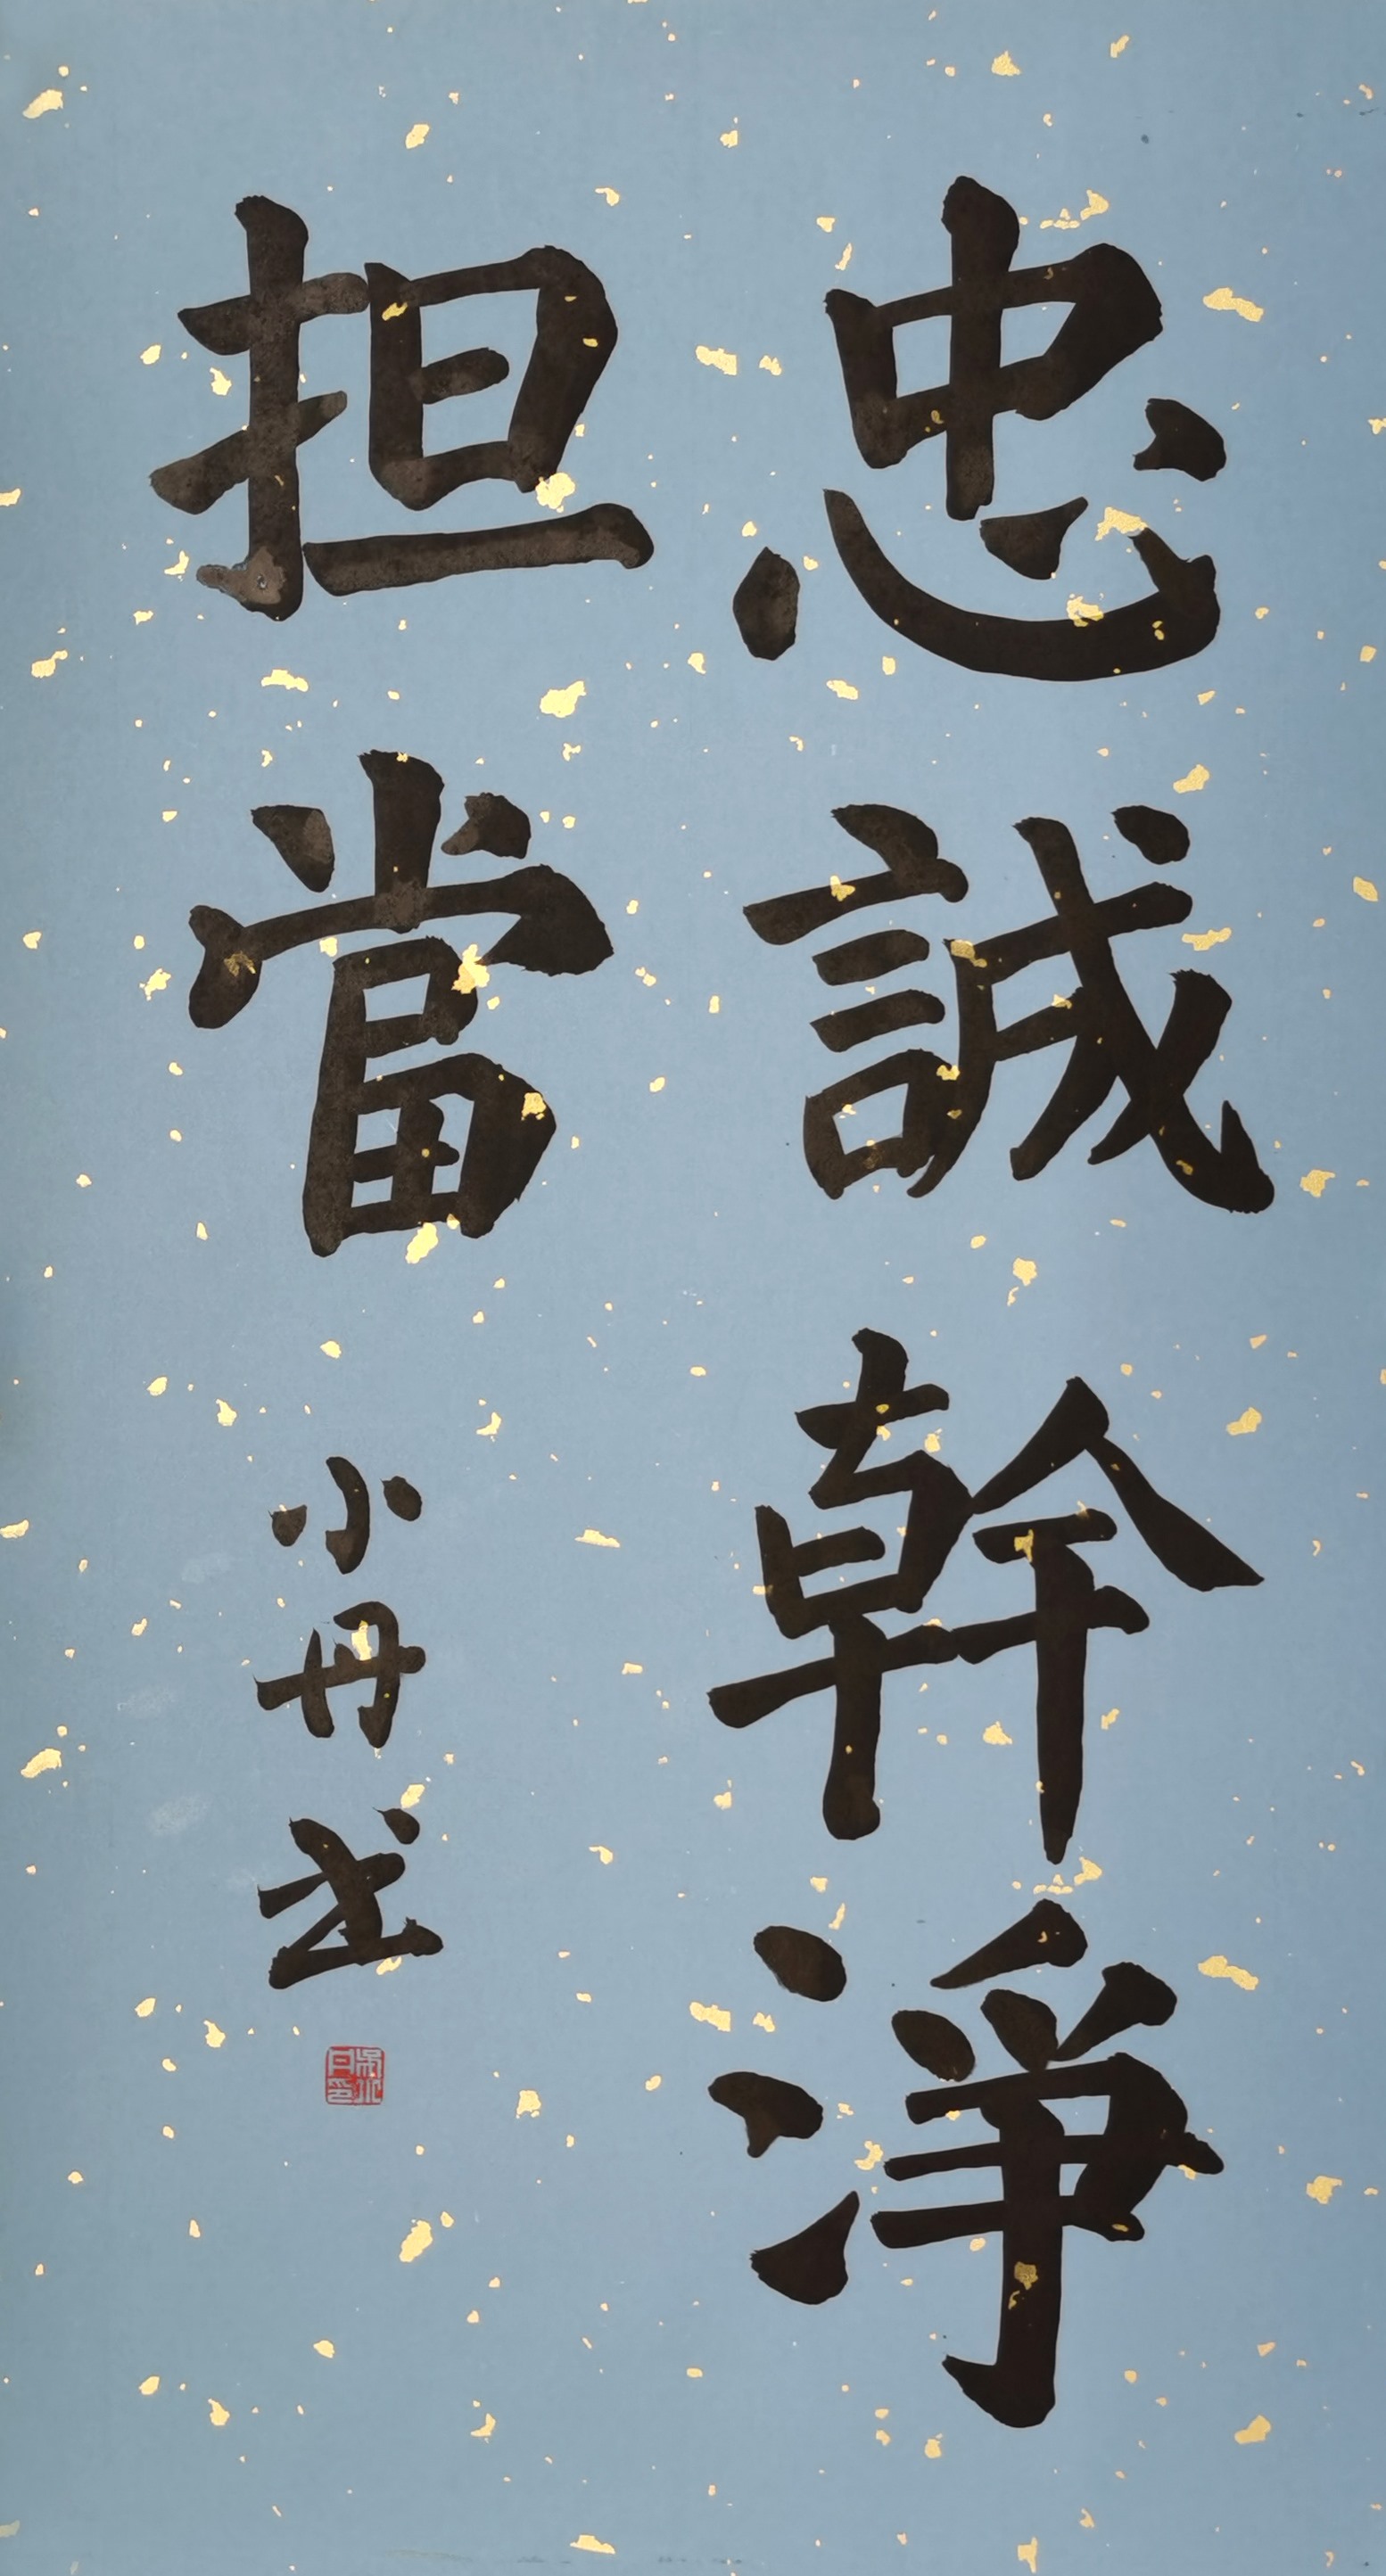 忠誠幹淨
担當
小丹书